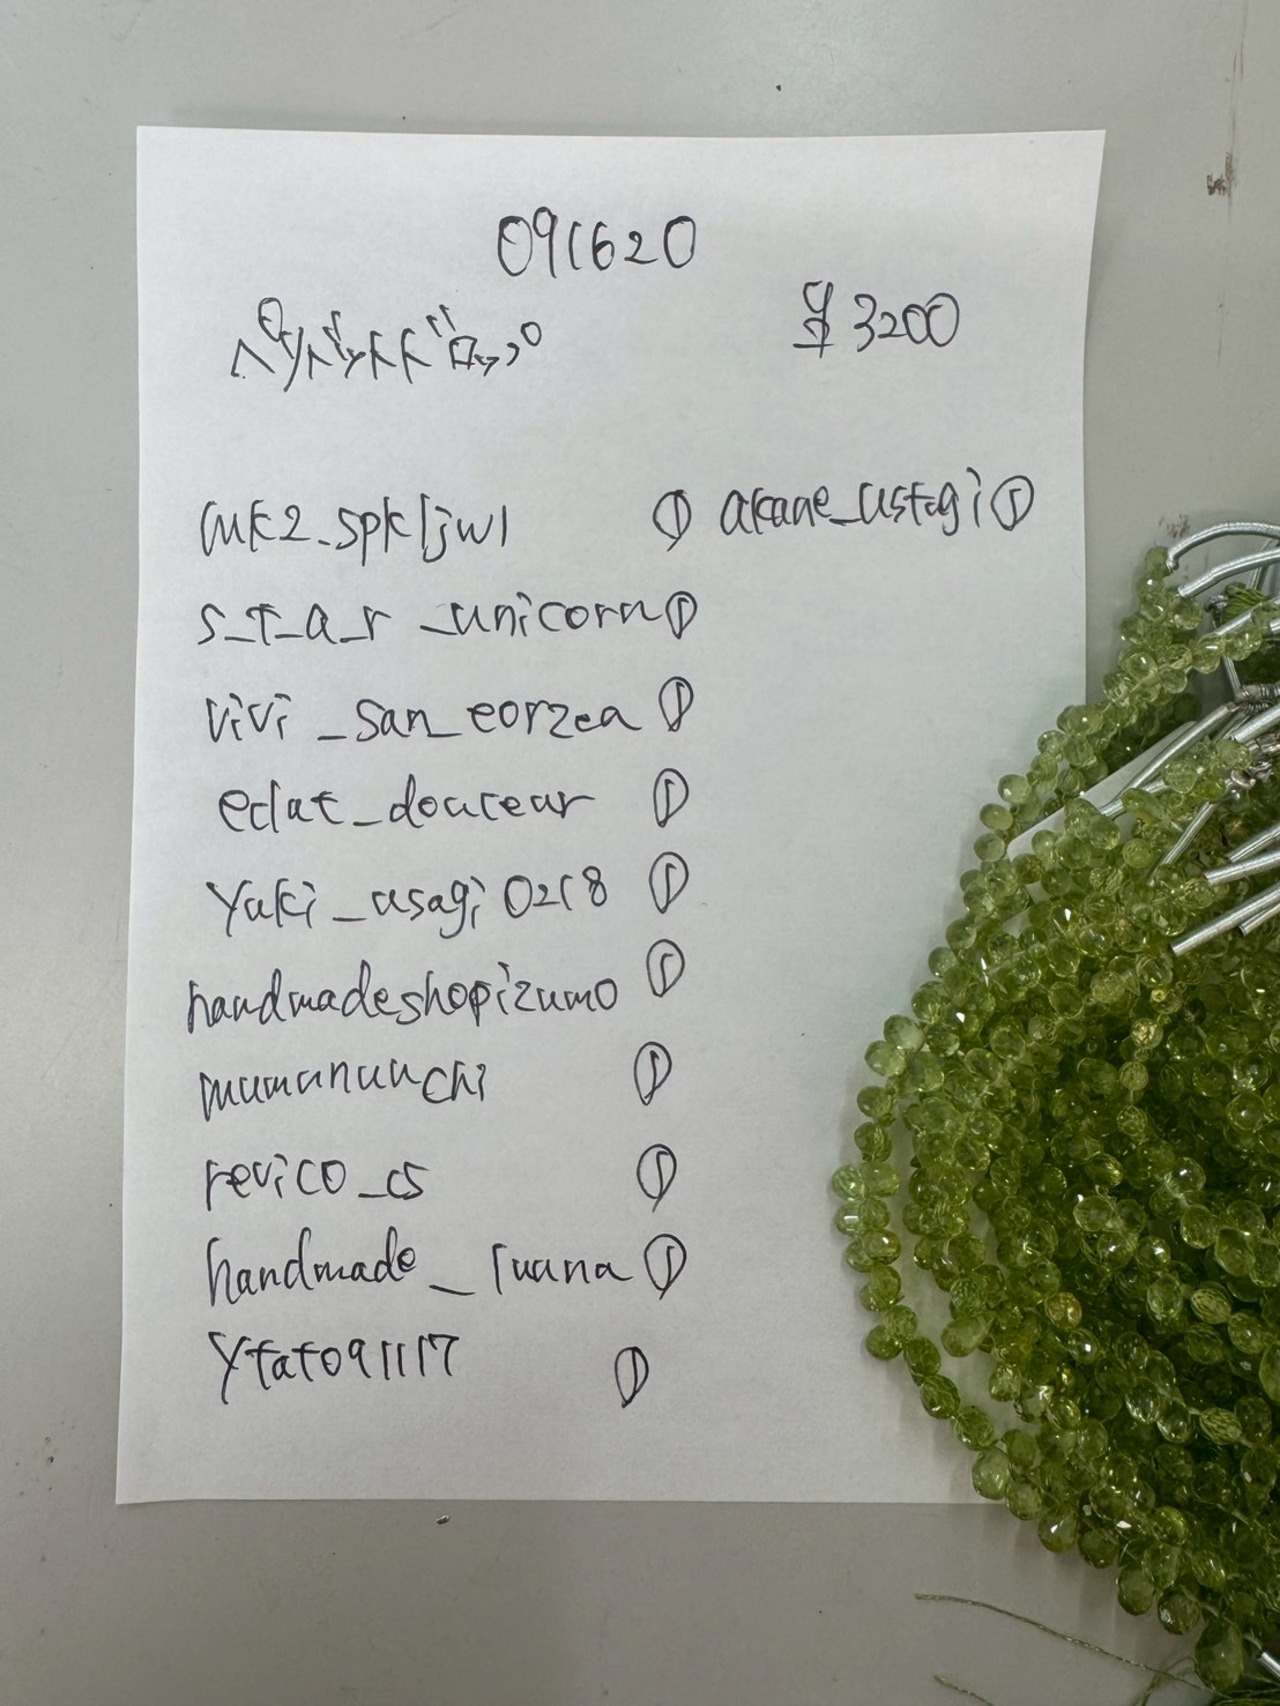 091620
ペリドットドロップ
¥3200
muk2_spkljwl ① akane_usagi ①
s_t_a_r_unicorn ①
vivi_san_eorzea ①
eclat_douceur ①
yuki_usagi0218 ①
handmadeshopizumo ①
mumunuuchi ①
revico_cs ①
handmade_luana ①
ytato91117 ①